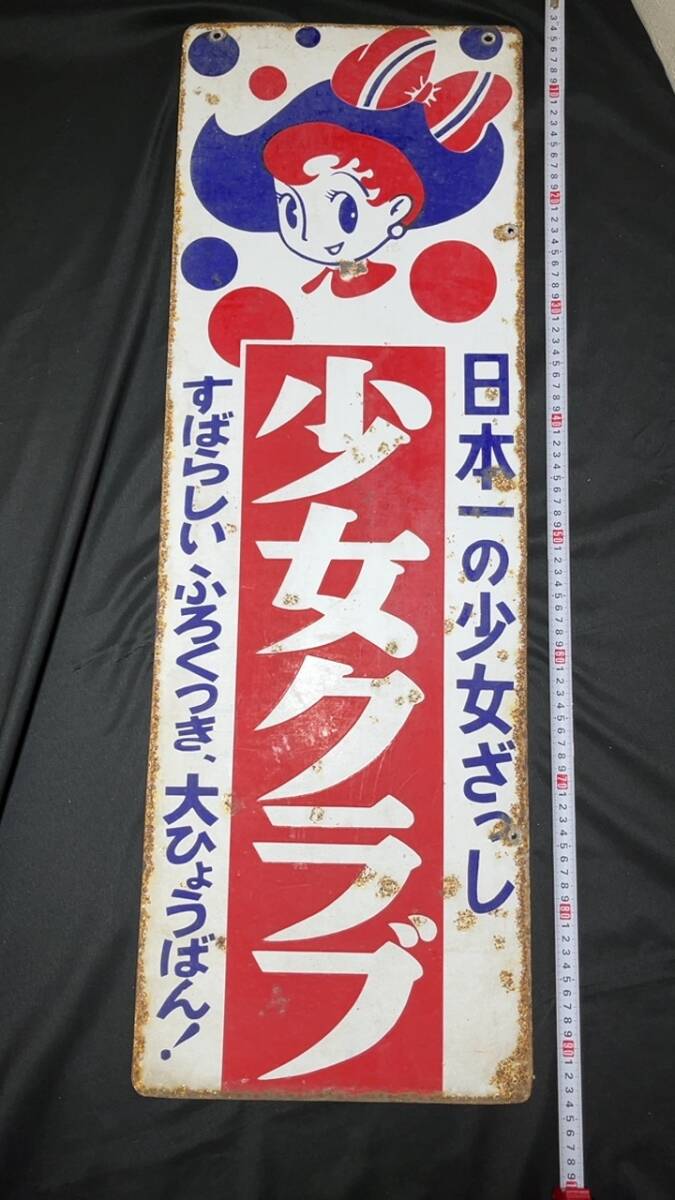 日本一の少女ざっし
少女クラブ
すばらしいふろくつき、大ひょうばん！